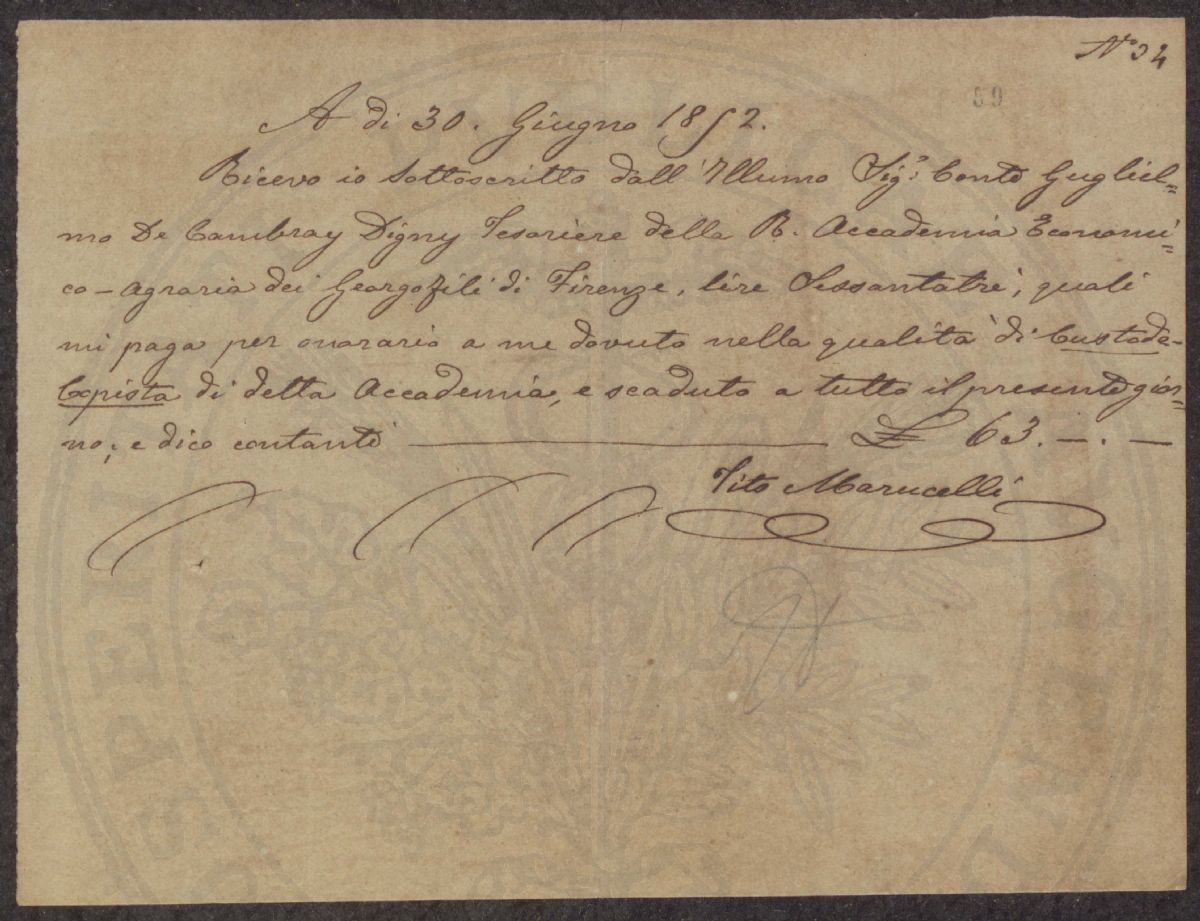 N° 34
59
A di 30. Giugno 1852.
Ricevo io Sottoscritto dall'Illumo Sig.r Conte Gugliel=
mo De Cambray Digny Tesoriere della R. Accademia Economi=
co-Agraria dei Georgofili di Firenze, lire Sessantatrè, quali
mi paga per onorario a me dovuto nella qualità di Custode-
Copista di detta Accademia, e scaduto a tutto il presente gior=
no; e dico contanti ——— £ 63. —. —
Tito Marucelli